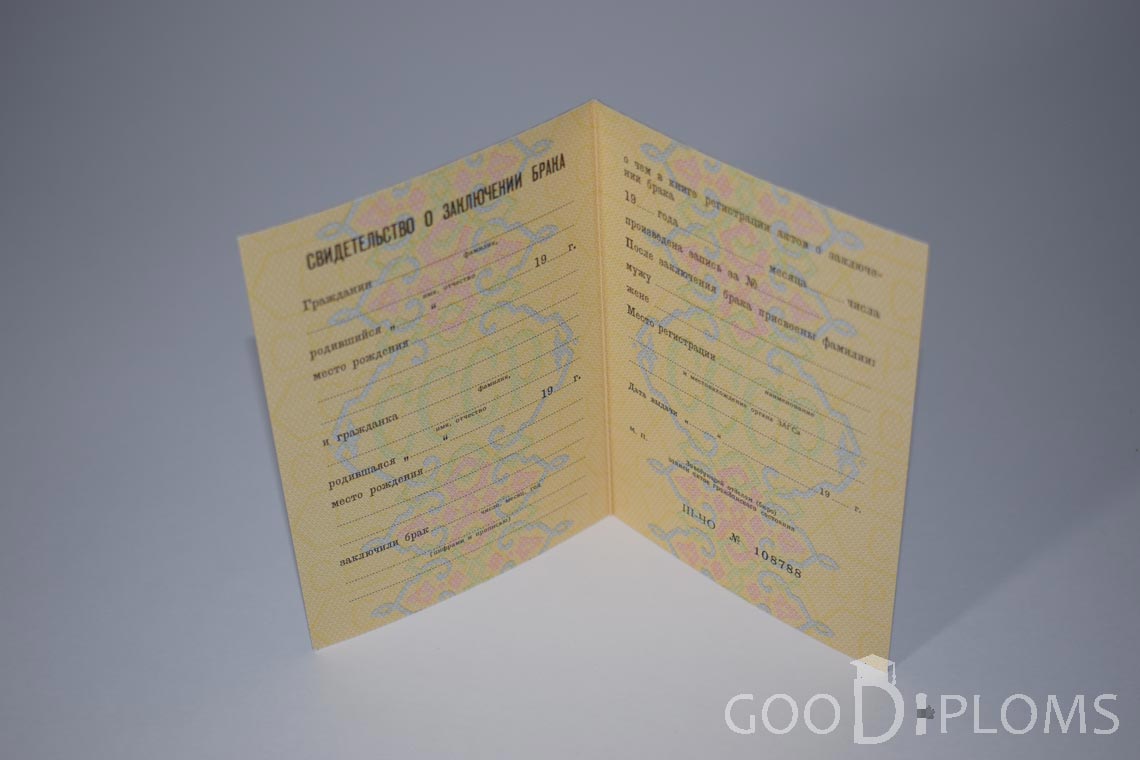 СВИДЕТЕЛЬСТВО О ЗАКЛЮЧЕНИИ БРАКА
Гражданин
фамилия,
имя, отчество
родившийся „ “ 19 г.
место рождения
и гражданка
фамилия,
имя, отчество
родившаяся „ “ 19 г.
место рождения
заключили брак
число, месяц, год
(цифрами и прописью)
о чем в книге регистрации актов о заключе-
нии брака
19 года месяца числа
произведена запись за №
После заключения брака присвоены фамилии:
мужу
жене
Место регистрации
наименование
и местонахождение органа ЗАГСа
Дата выдачи „ “ 19 г.
М. П.
Заведующий отделом (бюро)
записи актов гражданского состояния
III-ЧО № 108788
GOODiPLOMS